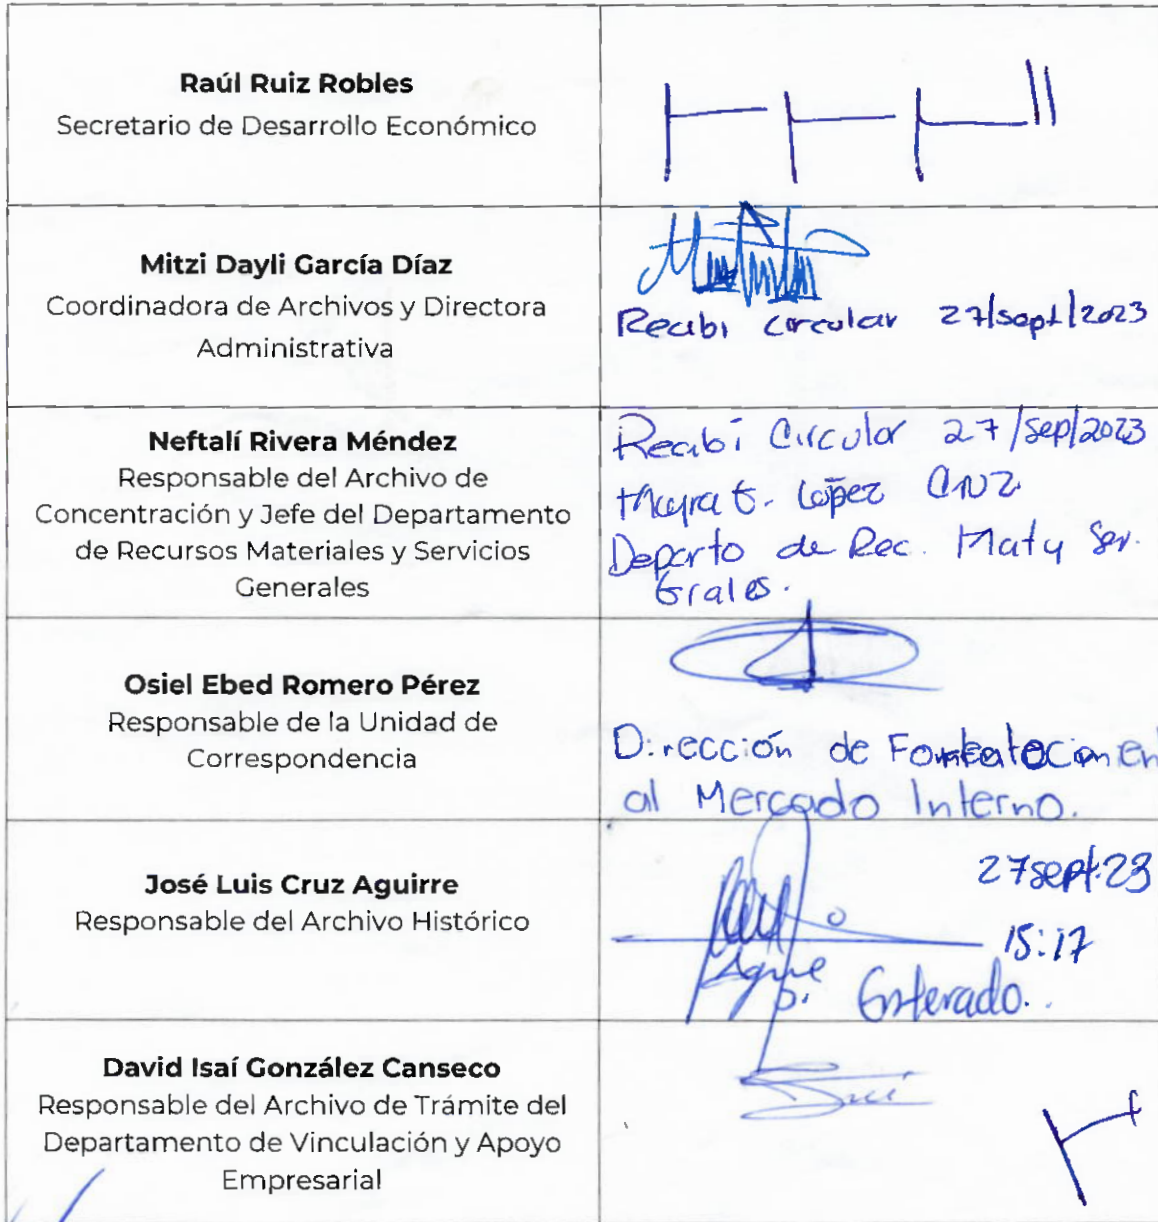 Raúl Ruiz Robles
Secretario de Desarrollo Económico
Mitzi Dayli García Díaz
Coordinadora de Archivos y Directora
Administrativa
Recibi circular 27/sept/2023
Neftalí Rivera Méndez
Responsable del Archivo de
Concentración y Jefe del Departamento
de Recursos Materiales y Servicios
Generales
Recibi Circular 27/Sep/2023
Mayra G. López Cruz
Departo de Rec. Mat y Ser.
Grales.
Osiel Ebed Romero Pérez
Responsable de la Unidad de
Correspondencia
Dirección de
al Mercado Interno.
José Luis Cruz Aguirre
Responsable del Archivo Histórico
27sept.23
15:17
Enterado.
David Isaí González Canseco
Responsable del Archivo de Trámite del
Departamento de Vinculación y Apoyo
Empresarial